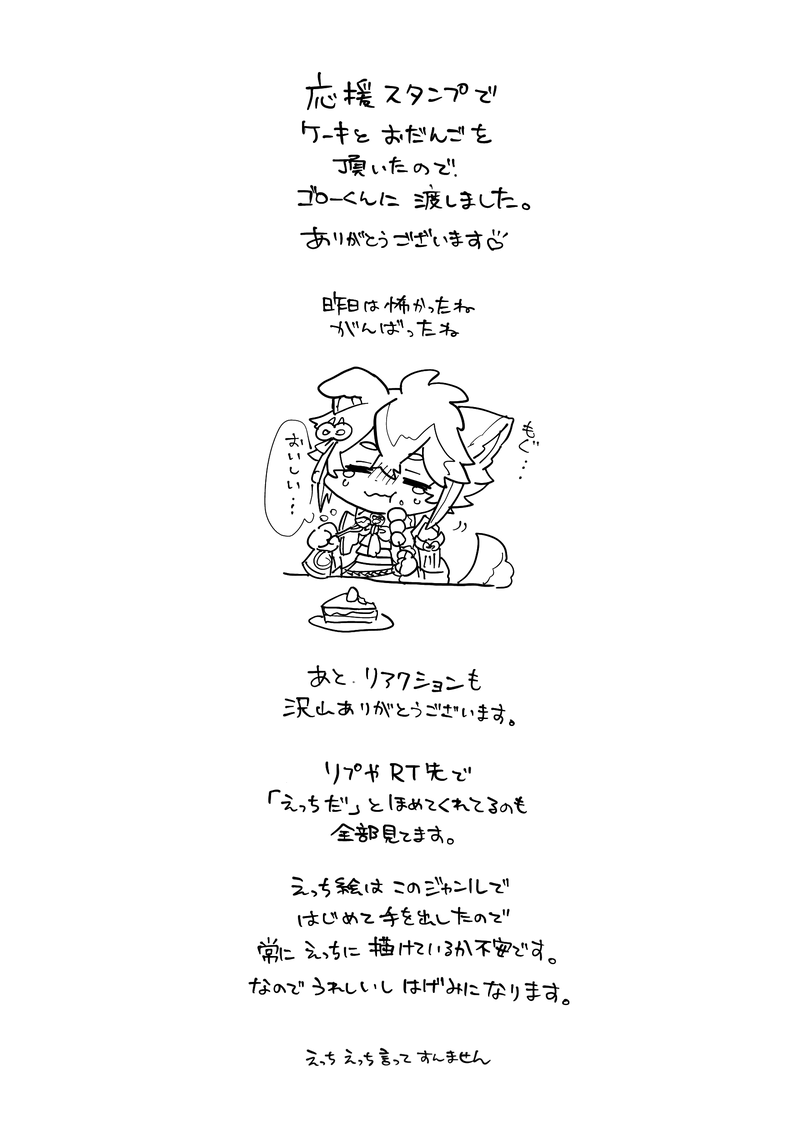 応援スタンプで
ケーキと おだんごを
頂いたので、
ゴローくんに 渡しました。
ありがとうございます♡
昨日は怖かったね
がんばったね
おいしい…
もぐ…
あと、リアクションも
沢山ありがとうございます。
リプや RT先で
「えっちだ」とほめてくれてるのも
全部見てます。
えっち絵は このジャンルで
はじめて手を出したので
常に えっちに 描けているか不安です。
なので うれしいし はげみになります。
えっち えっち 言って すんません